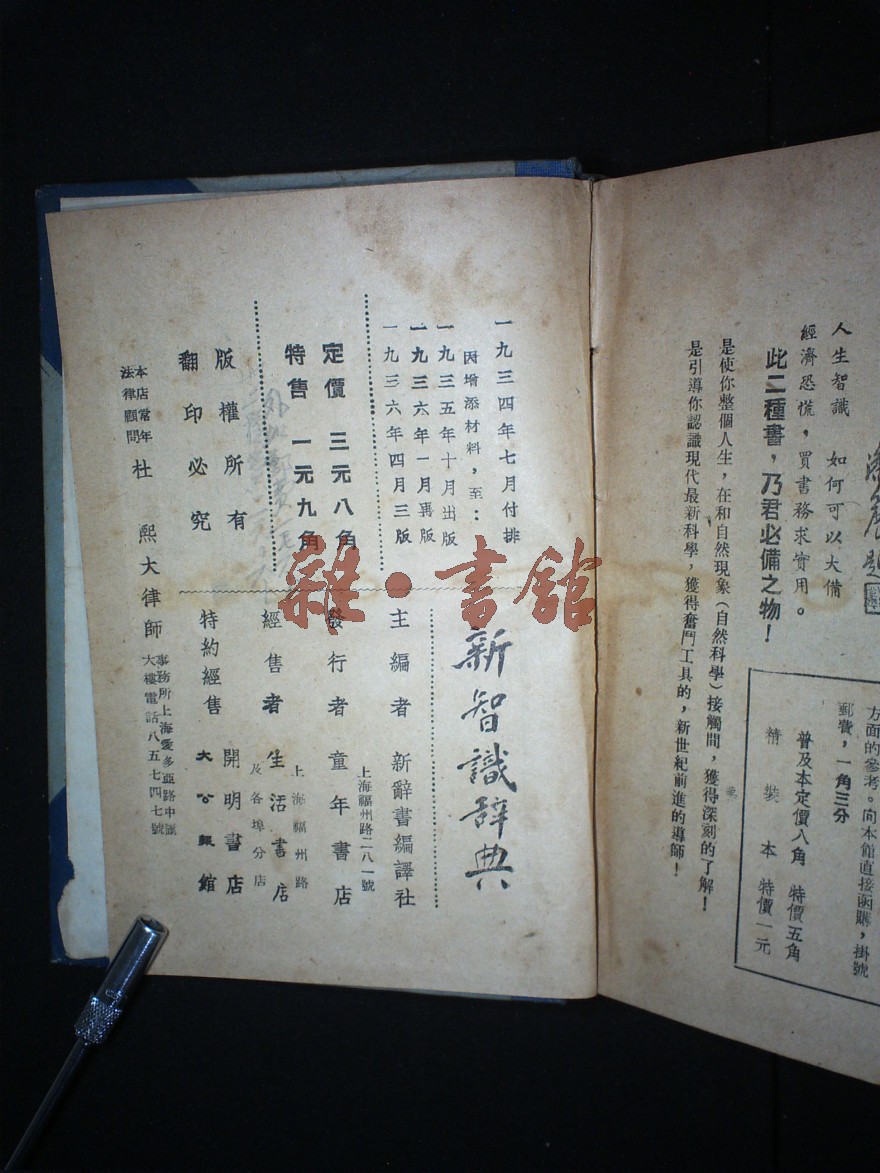 人生智識　如何可以大備
經濟恐慌，買書務求實用。
此二種書，乃君必備之物！
是使你整個人生，在和自然現象（自然科學）接觸間，獲得深刻的了解！
是引導你認識現代最新科學，獲得奮鬥工具的，新世紀前進的導師！
方面的參考。向本館直接函購，掛號
郵費，一角三分
普及本定價八角　特價五角
精裝本　特價一元
一九三四年七月付排
因增添材料，至：
一九三五年十月出版
一九三六年一月再版
一九三六年四月三版
定價　三元八角
特售　一元九角
版權所有
翻印必究
本店常年
法律顧問
杜　熙大律師
事務所上海愛多亞路中匯
大樓電話八五七四七號
新智識辞典
主編者　新辭書編譯社
發行者　童年書店
上海福州路二八一號
經售者　生活書店
上海福州路
及各埠分店
特約經售
開明書店
大公報館
雜·書館